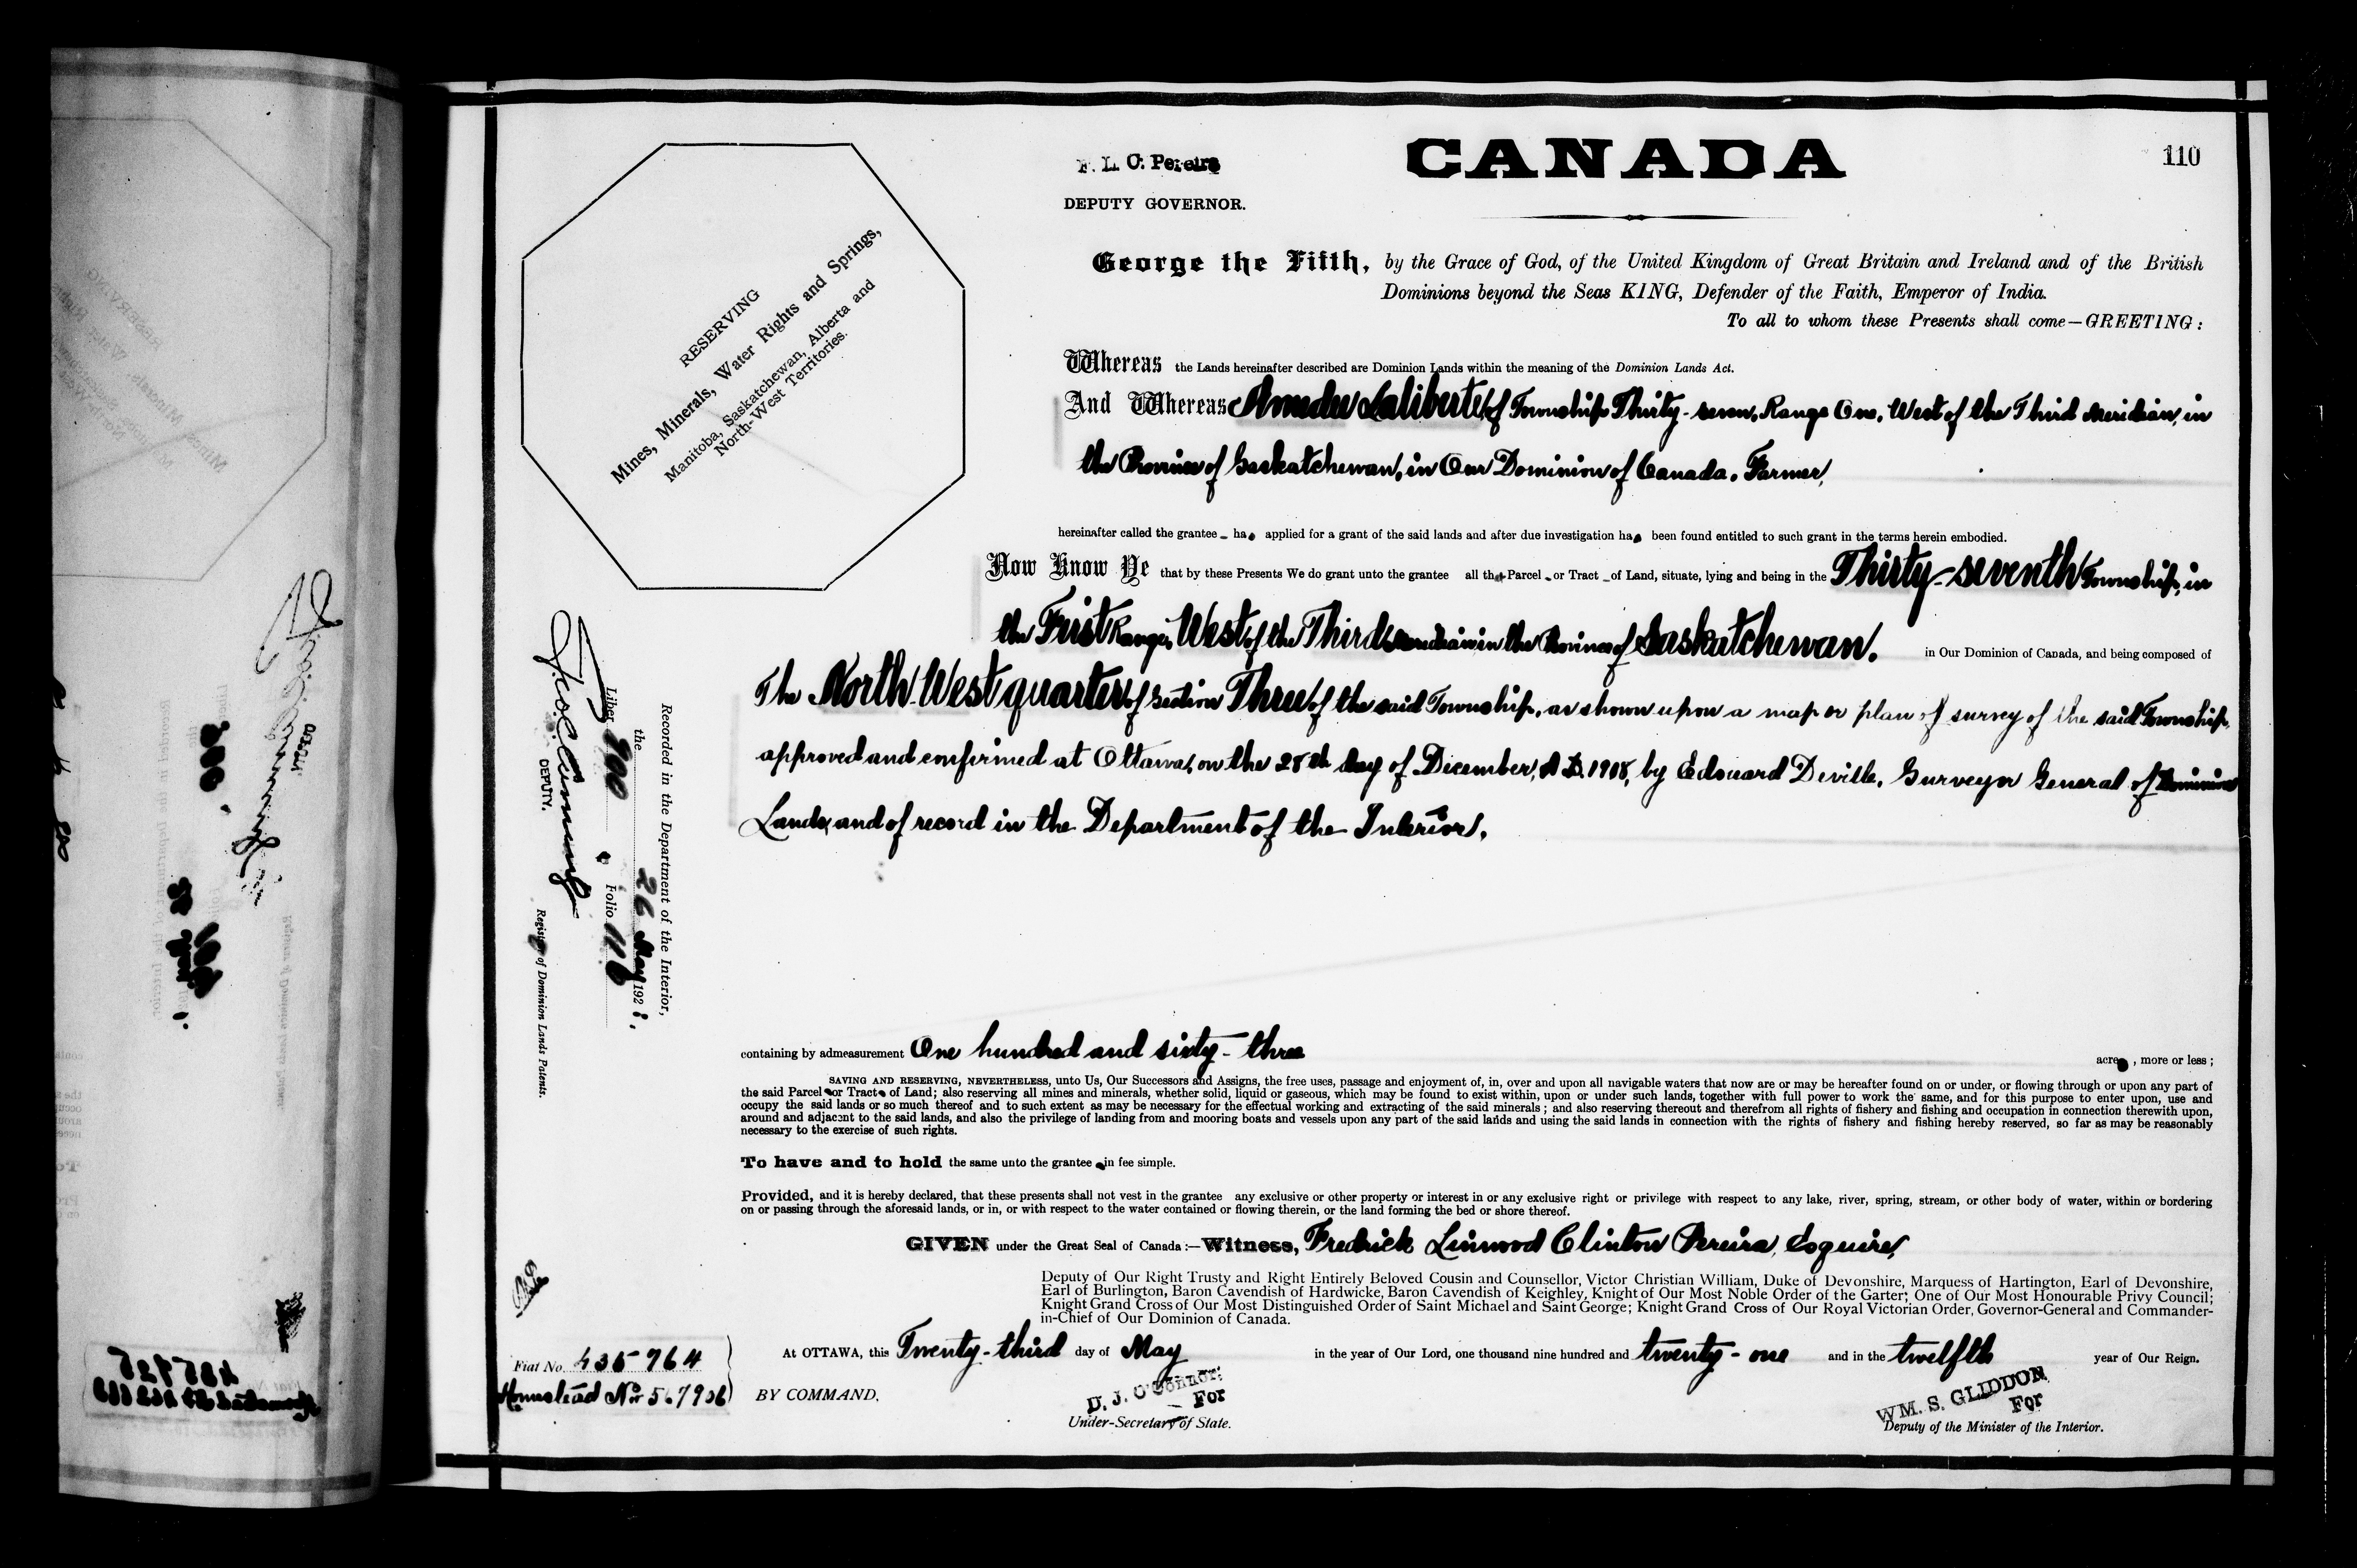 F. L. C. Pereira
DEPUTY GOVERNOR.
CANADA
110
George the Fifth, by the Grace of God, of the United Kingdom of Great Britain and Ireland and of the British
Dominions beyond the Seas KING, Defender of the Faith, Emperor of India.
To all to whom these Presents shall come—GREETING:
RESERVING
Mines, Minerals, Water Rights and Springs,
Manitoba, Saskatchewan, Alberta and
North-West Territories.
Whereas the Lands hereinafter described are Dominion Lands within the meaning of the Dominion Lands Act.
And Whereas Amedee Laliberte, of Township Thirty-seven, Range One, West of the Third Meridian, in
the Province of Saskatchewan, in Our Dominion of Canada, Farmer,
hereinafter called the grantee ha applied for a grant of the said lands and after due investigation ha been found entitled to such grant in the terms herein embodied.
Now Know Ye that by these Presents We do grant unto the grantee all that Parcel or Tract of Land, situate, lying and being in the Thirty-seventh Township, in
the First Range, West of the Third Meridian in the Province of Saskatchewan. in Our Dominion of Canada, and being composed of
The North West quarter of Section Three of the said Township, as shown upon a map or plan of survey of the said Township,
approved and confirmed at Ottawa, on the 28th day of December, A.D. 1908, by Edouard Deville, Surveyor General of Dominion
Lands, and of record in the Department of the Interior,
Recorded in the Department of the Interior,
the 26 May 1921.
Liber 900 Folio 110
DEPUTY.
Register of Dominion Lands Patents.
containing by admeasurement One hundred and sixty-three acre , more or less;
SAVING AND RESERVING, NEVERTHELESS, unto Us, Our Successors and Assigns, the free uses, passage and enjoyment of, in, over and upon all navigable waters that now are or may be hereafter found on or under, or flowing through or upon any part of
the said Parcel or Tract of Land; also reserving all mines and minerals, whether solid, liquid or gaseous, which may be found to exist within, upon or under such lands, together with full power to work the same, and for this purpose to enter upon, use and
occupy the said lands or so much thereof and to such extent as may be necessary for the effectual working and extracting of the said minerals; and also reserving thereout and therefrom all rights of fishery and fishing and occupation in connection therewith upon,
around and adjacent to the said lands, and also the privilege of landing from and mooring boats and vessels upon any part of the said lands and using the said lands in connection with the rights of fishery and fishing hereby reserved, so far as may be reasonably
necessary to the exercise of such rights.
To have and to hold the same unto the grantee in fee simple.
Provided, and it is hereby declared, that these presents shall not vest in the grantee any exclusive or other property or interest in or any exclusive right or privilege with respect to any lake, river, spring, stream, or other body of water, within or bordering
on or passing through the aforesaid lands, or in, or with respect to the water contained or flowing therein, or the land forming the bed or shore thereof.
GIVEN under the Great Seal of Canada:—Witness, Fredrick Linwood Clinton Pereira, Esquire,
Deputy of Our Right Trusty and Right Entirely Beloved Cousin and Counsellor, Victor Christian William, Duke of Devonshire, Marquess of Hartington, Earl of Devonshire,
Earl of Burlington, Baron Cavendish of Hardwicke, Baron Cavendish of Keighley, Knight of Our Most Noble Order of the Garter; One of Our Most Honourable Privy Council;
Knight Grand Cross of Our Most Distinguished Order of Saint Michael and Saint George; Knight Grand Cross of Our Royal Victorian Order, Governor-General and Commander-
in-Chief of Our Dominion of Canada.
At OTTAWA, this Twenty-third day of May in the year of Our Lord, one thousand nine hundred and twenty-one and in the twelfth year of Our Reign.
Fiat No. 435764
Homestead No. 567906
BY COMMAND,
D. J. O'Connor:
For
Under-Secretary of State.
WM. S. GLIDDON
For
Deputy of the Minister of the Interior.